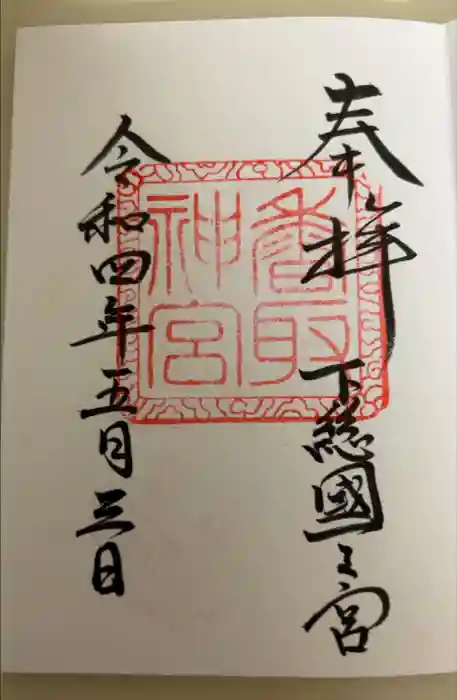 奉拝
下総國一之宮
香取
神宮
令和四年五月三日